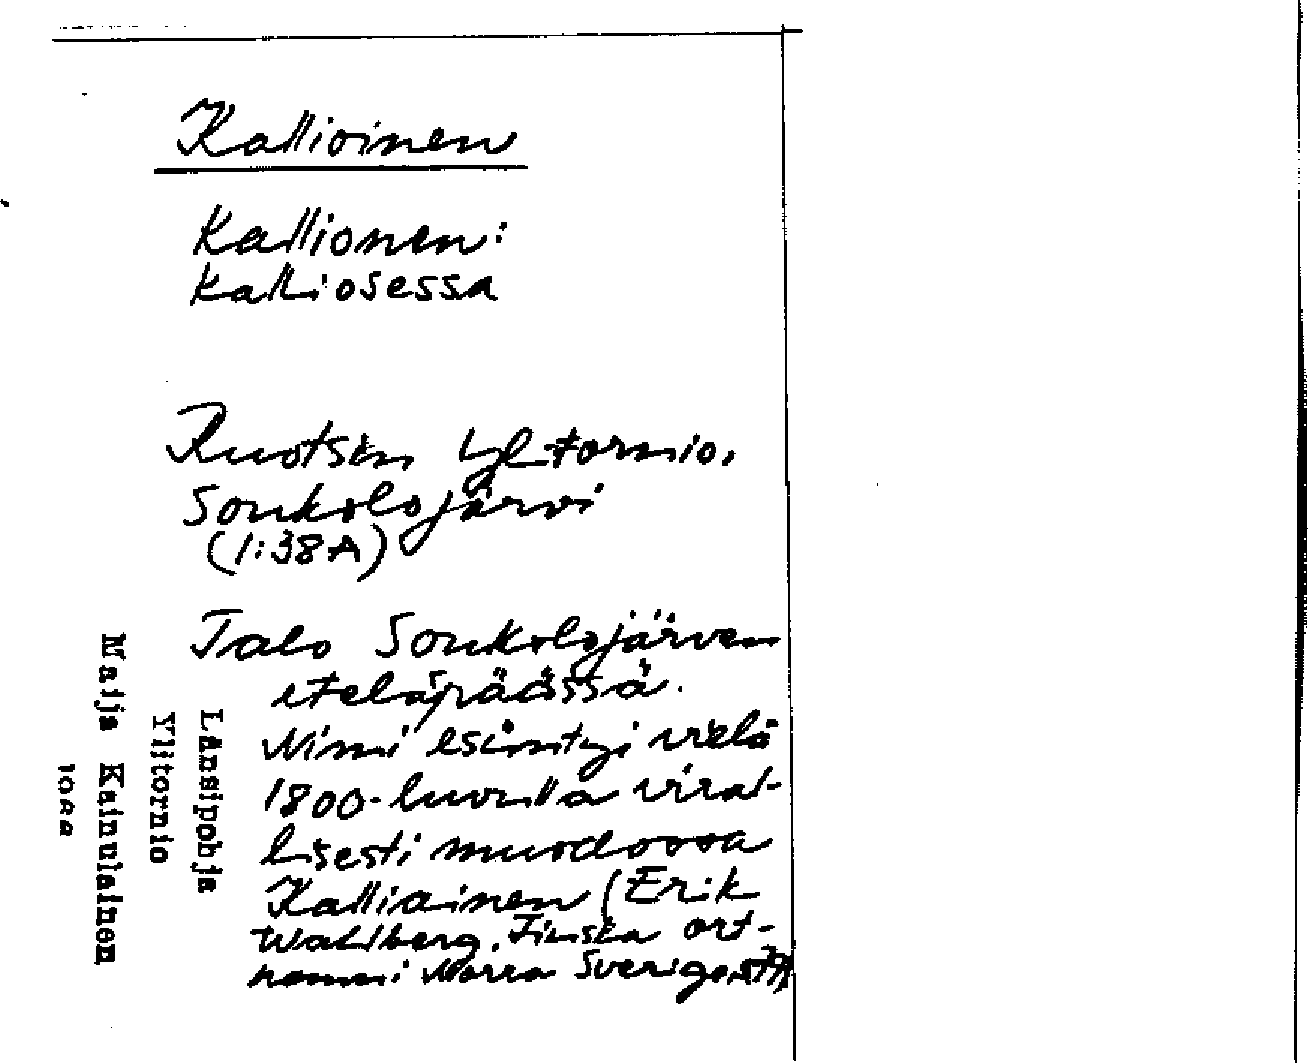 Kallioinen
Kallionen:
kalliosessa
Ruotsin Ylitornio,
Soukolojärvi
(1:38A)
Talo Soukolojärven
eteläpäässä.
Nimi esiintyi vielä
1800-luvulla viral-
lisesti muodossa
Kalliainen (Erik
Wahlberg, Finska ort-
namn i Norra Sverige, s
Länsipohja
Ylitornio
Maija Kainulainen